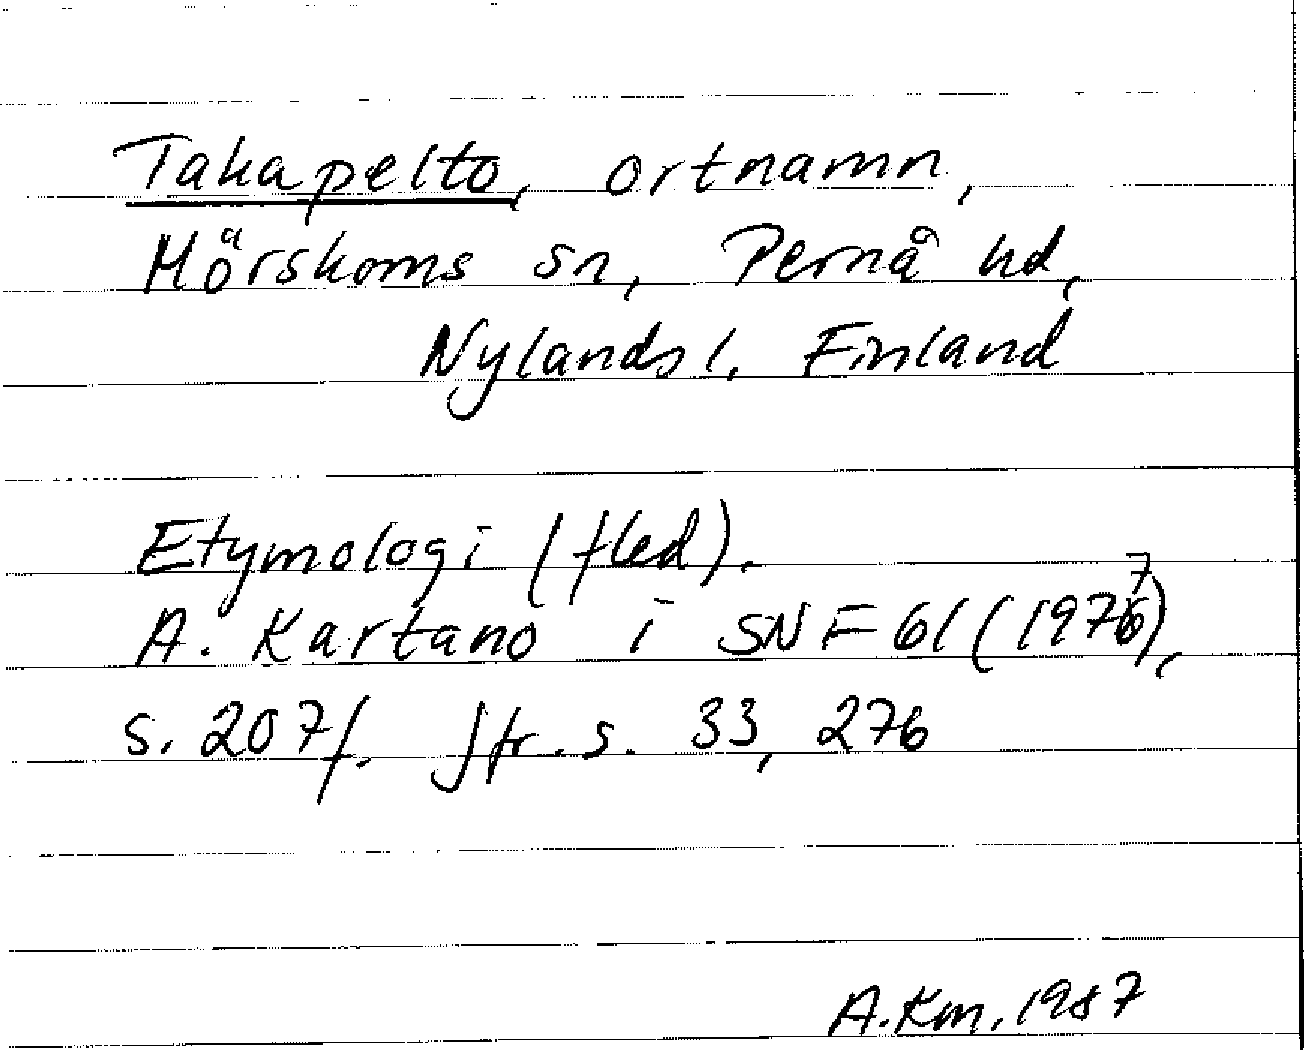 Takapelto, ortnamn,
Mörskoms sn, Pernå hd,
Nylands l. Finland
Etymologi (fled).
A. Kartano i SNF 61 (1977),
s. 207f. Jfr. s. 33, 276
A.Km. 1987